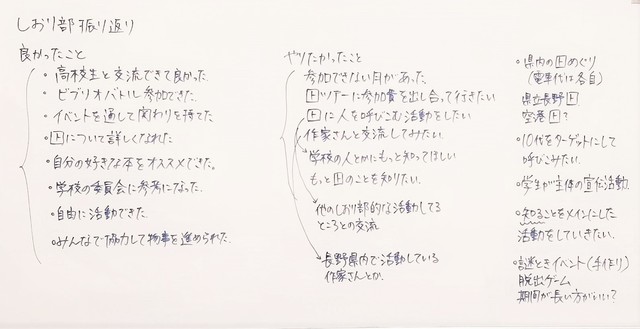 しおり部 振り返り
良かったこと
・高校生と交流できて良かった.
・ビブリオバトル参加できた.
・イベントを通して関わりを持てた
・囲について詳しくなれた
・自分の好きな本をオススメできた。
・学校の委員会に参考になった.
・自由に活動できた.
・みんなで協力して物事を進められた.
やりたかったこと
参加できない月があった
ツアーに参加費を出し合って行きたい
に人を呼びこむ活動をしたい
作家さんと交流してみたい.
学校の人とかにもっと知ってほしい
もっと のことを知りたい.
他のしおり部的な活動してる
ところとの交流
長野県内で活動している
作家さんとか.
・県内の めぐり
(電車代は各自)
県立長野
空港 ?
・10代をターゲットにして
呼びこみたい.
・学生が主体の宣伝活動
・知ることをメインにした
活動をしていきたい.
・謎ときイベント(手作り)
脱出ゲーム
期間が長い方がいい?